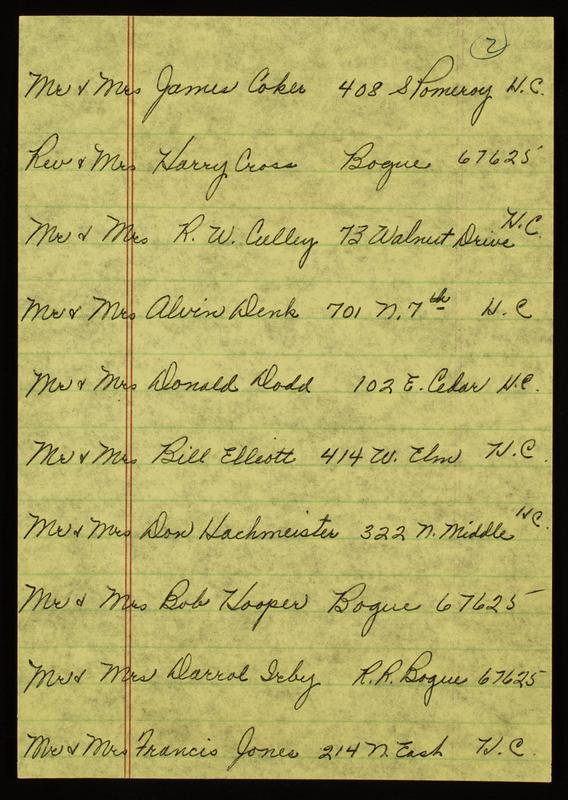 2
Mr & Mrs James Coker 408 S Pomeroy H.C.
Rev & Mrs Harry Cross Bogue 67625
Mr & Mrs R. W. Culley 73 Walnut Drive H.C.
Mr & Mrs Alvin Denk 701 N. 7th H.C
Mr & Mrs Donald Dodd 102 E. Cedar H.C.
Mr & Mrs Bill Elliott 414 W. Elm H.C.
Mr & Mrs Don Hachmeister 322 N. Middle H.C.
Mr & Mrs Bob Hooper Bogue 67625
Mr & Mrs Darrol Irby R.R. Bogue 67625
Mr & Mrs Francis Jones 214 N. East H.C.